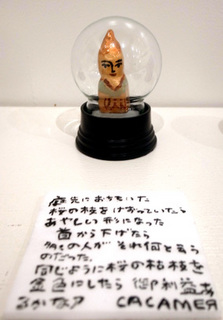 庭先におちていた
桜の枝をけずっていたら
あやしい形になった
首から下げたら
多くの人が それ何と言う
のだった。
同じように桜の枯枝を
金色にしたら 御利益あ
るかな? CACAMER